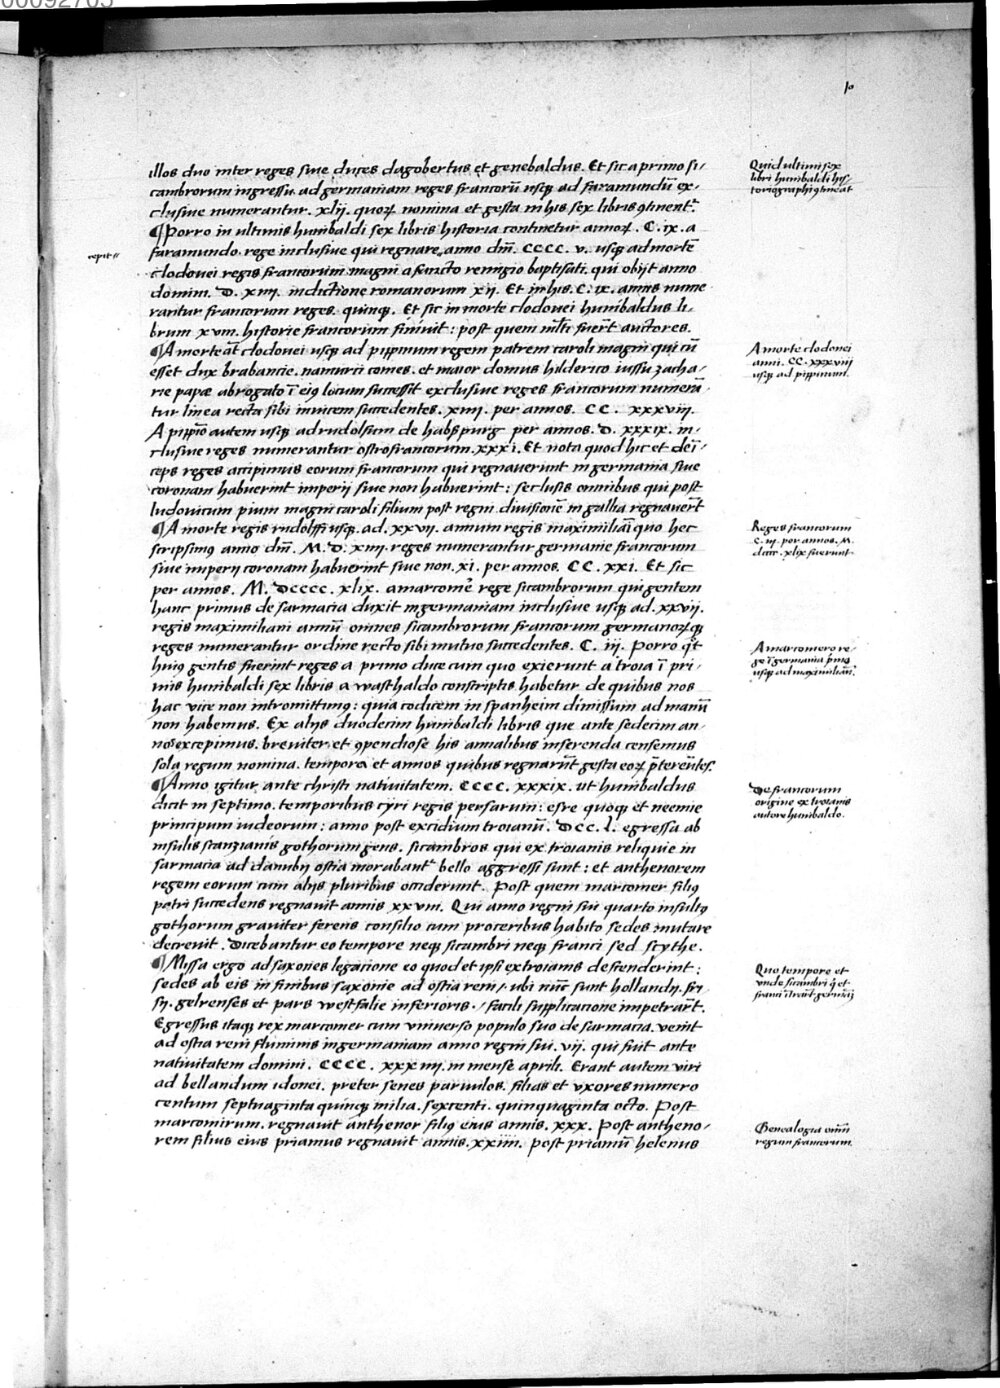 00092705
10
illos duo inter reges siue duces dagobertus et genebaldus. Et sic a primo si/
cambrorum ingressu ad germaniam reges francorū usqꝫ ad faramundū ex/
clusiue numerantur. xlij. quoꝝ nomina et gesta in his sex libris ꝯtinent᷑.
¶Porro in ultimis hunibaldi sex libris historia continetur annoꝝ. C. ix. a
faramundo rege inclusiue qui regnare anno dn̄i. CCCC. v. usqꝫ ad mortē
clodouei regis francorum magni a sancto remigio baptisati. qui obijt anno
domini. D. xiiij. indictione romanorum xij. Et in his. C. ix. annis nume
rantur francorum reges quinqꝫ. Et sic in morte clodouei hunibaldus li/
brum xviij. historie francorum finiuit: post quem ml̄ti fuer̄t auctores.
¶A morte at̄ clodouei usqꝫ ad pippinum regem patrem caroli magni qui cū
esset dux brabancie. namurci comes. et maior domus hilderico iussu zacha/
rie papæ abrogato ī eiꝰ locum successit exclusiue reges francorum numerā
tur linea recta sibi inuicem succedentes. xiiij. per annos. CC. xxxviij.
A pippīo autem usqꝫ ad rudolfum de habspurg per annos. D. xxxix. in/
clusiue reges numerantur ostrofrancorum. xxxi. Et nota quod hic et deī/
ceps reges accipimus eorum francorum qui regnauerunt in germania siue
coronam habuerint imperij siue non habuerint: seclusis omnibus qui post
ludouicum pium magni caroli filium post regni diuisionē in gallia regnauer̄t
¶A morte regis rudolffi usqꝫ. ad. xxvij. annum regis maximiliāi quo hec
scripsimꝰ anno dn̄i. M. D. xiiij. reges numerantur germanie francorum
siue imperij coronam habuerint siue non. xi. per annos. CC. xxi. Et sic
per annos. M. DCCCC. xlix. a marcomē rege sicambrorum qui gentem
hanc primus de sarmacia duxit in germaniam inclusiue usqꝫ ad. xxvij.
regis maximiliani annū omnes sicambrorum francorum germanoꝝqꝫ
reges numerantur ordine recto sibi mutuo succedentes. C. iij. Porro qꝫt
huiꝰ gentis fuerint reges a primo duce cum quo exierunt a troia ī pri/
mis hunibaldi sex libris a wasthaldo conscriptis habetur. de quibus nos
hac vice non intromittimꝰ: quia codicem in spanheim dimissum ad manū
non habemus. Ex alijs duodecim hunibaldi libris que ante sedecim an/
nos excepimus. breuiter et ꝯpendiose his annalibus inserenda censemus
sola regum nomina. tempora et annos quibus regnarūt gesta eoꝝ p̄tereūtes.
¶Anno igitur ante christi natiuitatem. CCCC. xxxix. ut hunibaldus
dicit in septimo. temporibus cyri regis persarum: esre quoqꝫ et neemie
principum iudeorum: anno post excidium troianū. DCC. l. egressa ab
insulis scanzianis gothorum gens. sicambros qui ex troianis reliquie in
sarmacia ad danubij ostia morabant᷑ bello aggressi sunt: et anthenorem
regem eorum cum alijs pluribus occiderunt. Post quem marcomer filiꝰ
patri succedens regnauit annis xxviij. Qui anno regni sui quarto insultꝰ
gothorum grauiter ferens consilio cum proceribus habito sedes mutare
decreuit. Dicebantur eo tempore neqꝫ sicambri neqꝫ franci sed scythe.
¶Missa ergo ad saxones legacione eo quod et ipsi ex troianis descenderint:
sedes ab eis in finibus saxonie ad ostia reni / ubi nūc sunt hollandij. fri
sij. gelrenses et pars westfalie inferioris / facili supplicatione impetrar̄t.
Egressus itaqꝫ rex marcomer cum vniuerso populo suo de sarmacia. venit
ad ostia reni fluminis in germaniam anno regni sui. vij. qui fuit ante
natiuitatem domini. CCCC. xxxiiij. in mense aprili. Erant autem viri
ad bellandum idonei. preter senes paruulos. filias et vxores numero
centum septuaginta quinqꝫ milia. sexcenti. quinquaginta octo. Post
marcomirum. regnauit anthenor filiꝰ eius annis. xxx. Post antheno/
rem filius eius priamus regnauit annis. xxiiij. post priamū helenus
cepit
Quid ultimi sex
libri hunibaldi his/
toriographi ꝯtineāt
A morte clodouei
anni. CC. xxxviij
usqꝫ ad pippinum.
Reges francorum
C. iij. per annos. M.
dcccc. xlix fuerunt
A marcomero re/
ge ī germania p̄mo
usqꝫ ad maximilianū.
De francorum
origine ex troianis
autore hunibaldo.
Quo tempore et
vnde sicambri
Genealogia oīm
regum francorum.